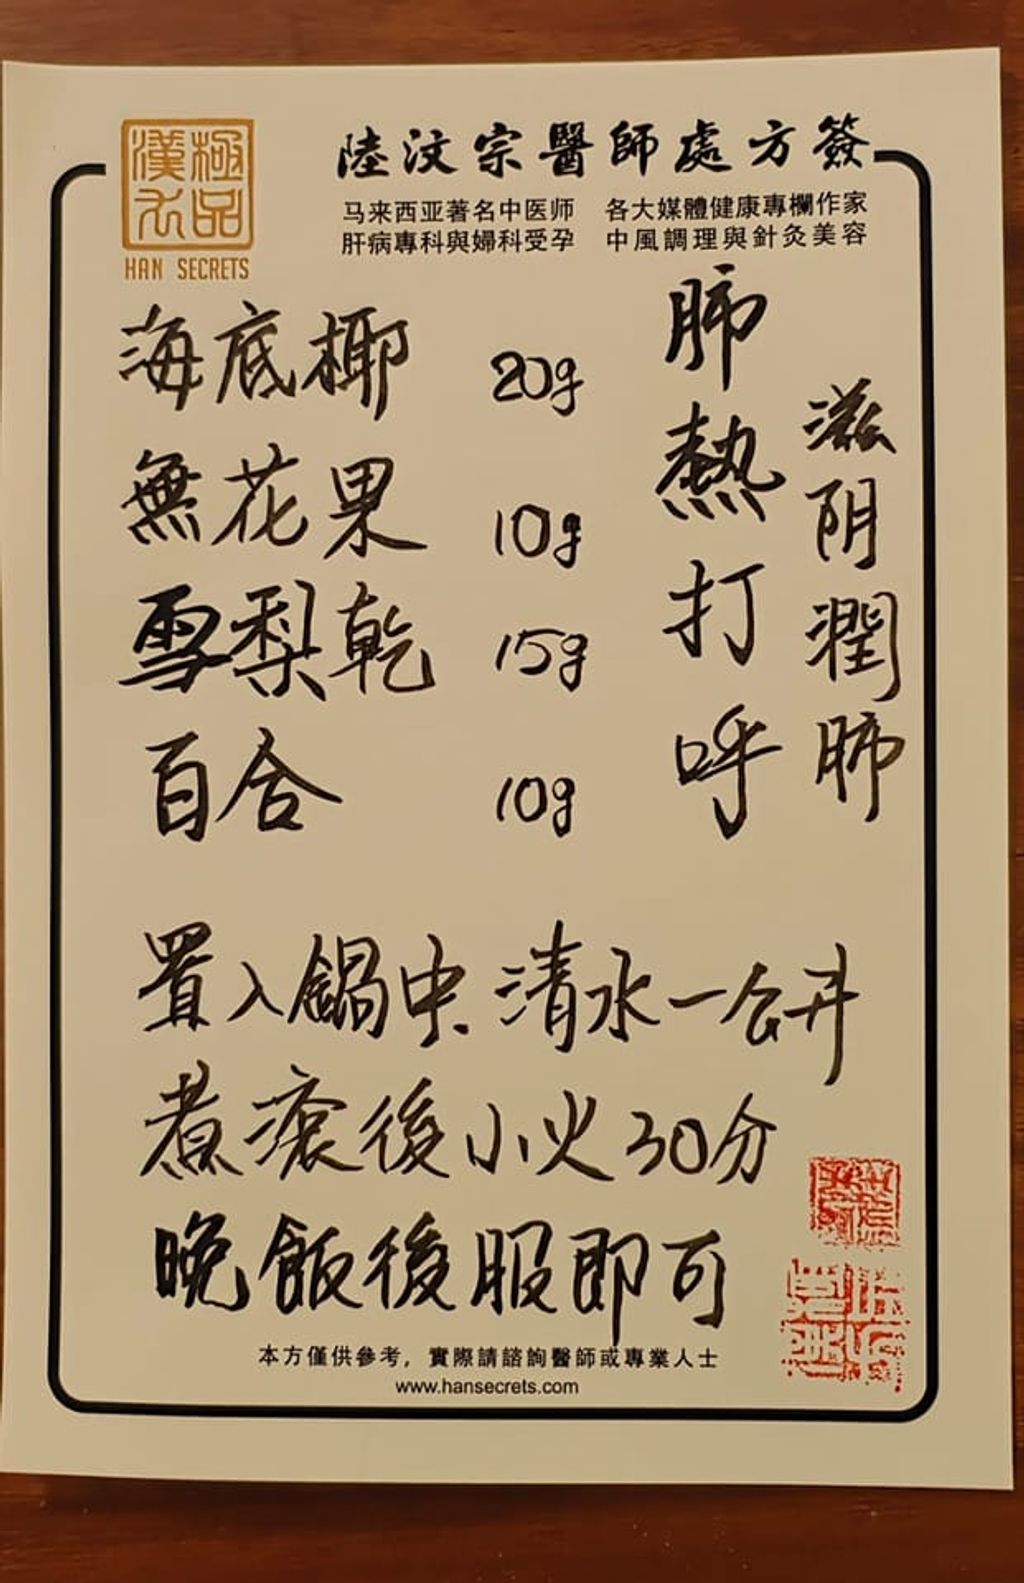 極品
漢方
HAN SECRETS
陸汶宗醫師處方簽
马来西亚著名中医师 各大媒體健康專欄作家
肝病專科與婦科受孕 中風調理與針灸美容
肺熱打呼
滋阴潤肺
海底椰 20g
無花果 10g
雪梨乾 15g
百合 10g
置入鍋中.清水一公升
煮滾後小火30分
晚飯後服即可
本方僅供參考，實際請諮詢醫師或專業人士
www.hansecrets.com